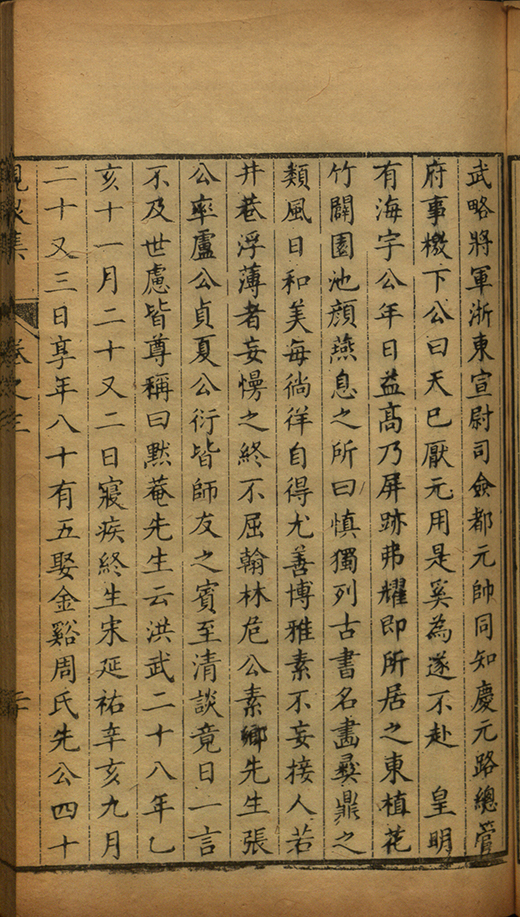 武略將軍浙東宣尉司僉都元帥同知慶元路總管
府事檄下公曰天已厭元用是奚為遂不赴　皇明
有海宇公年日益高乃屏跡弗耀即所居之東植花
竹闢園池顔燕息之所曰慎獨列古書名畵彝鼎之
類風日和美每徜徉自得尤善博雅素不妄接人若
井巷浮薄者妄慢之終不屈翰林危公素鄉先生張
公率盧公貞夏公衍皆師友之賓至清談竟日一言
不及世慮皆尊稱曰黙菴先生云洪武二十八年乙
亥十一月二十又二日寢疾終生宋延祐辛亥九月
二十又三日享年八十有五娶金谿周氏先公四十
集
卷之